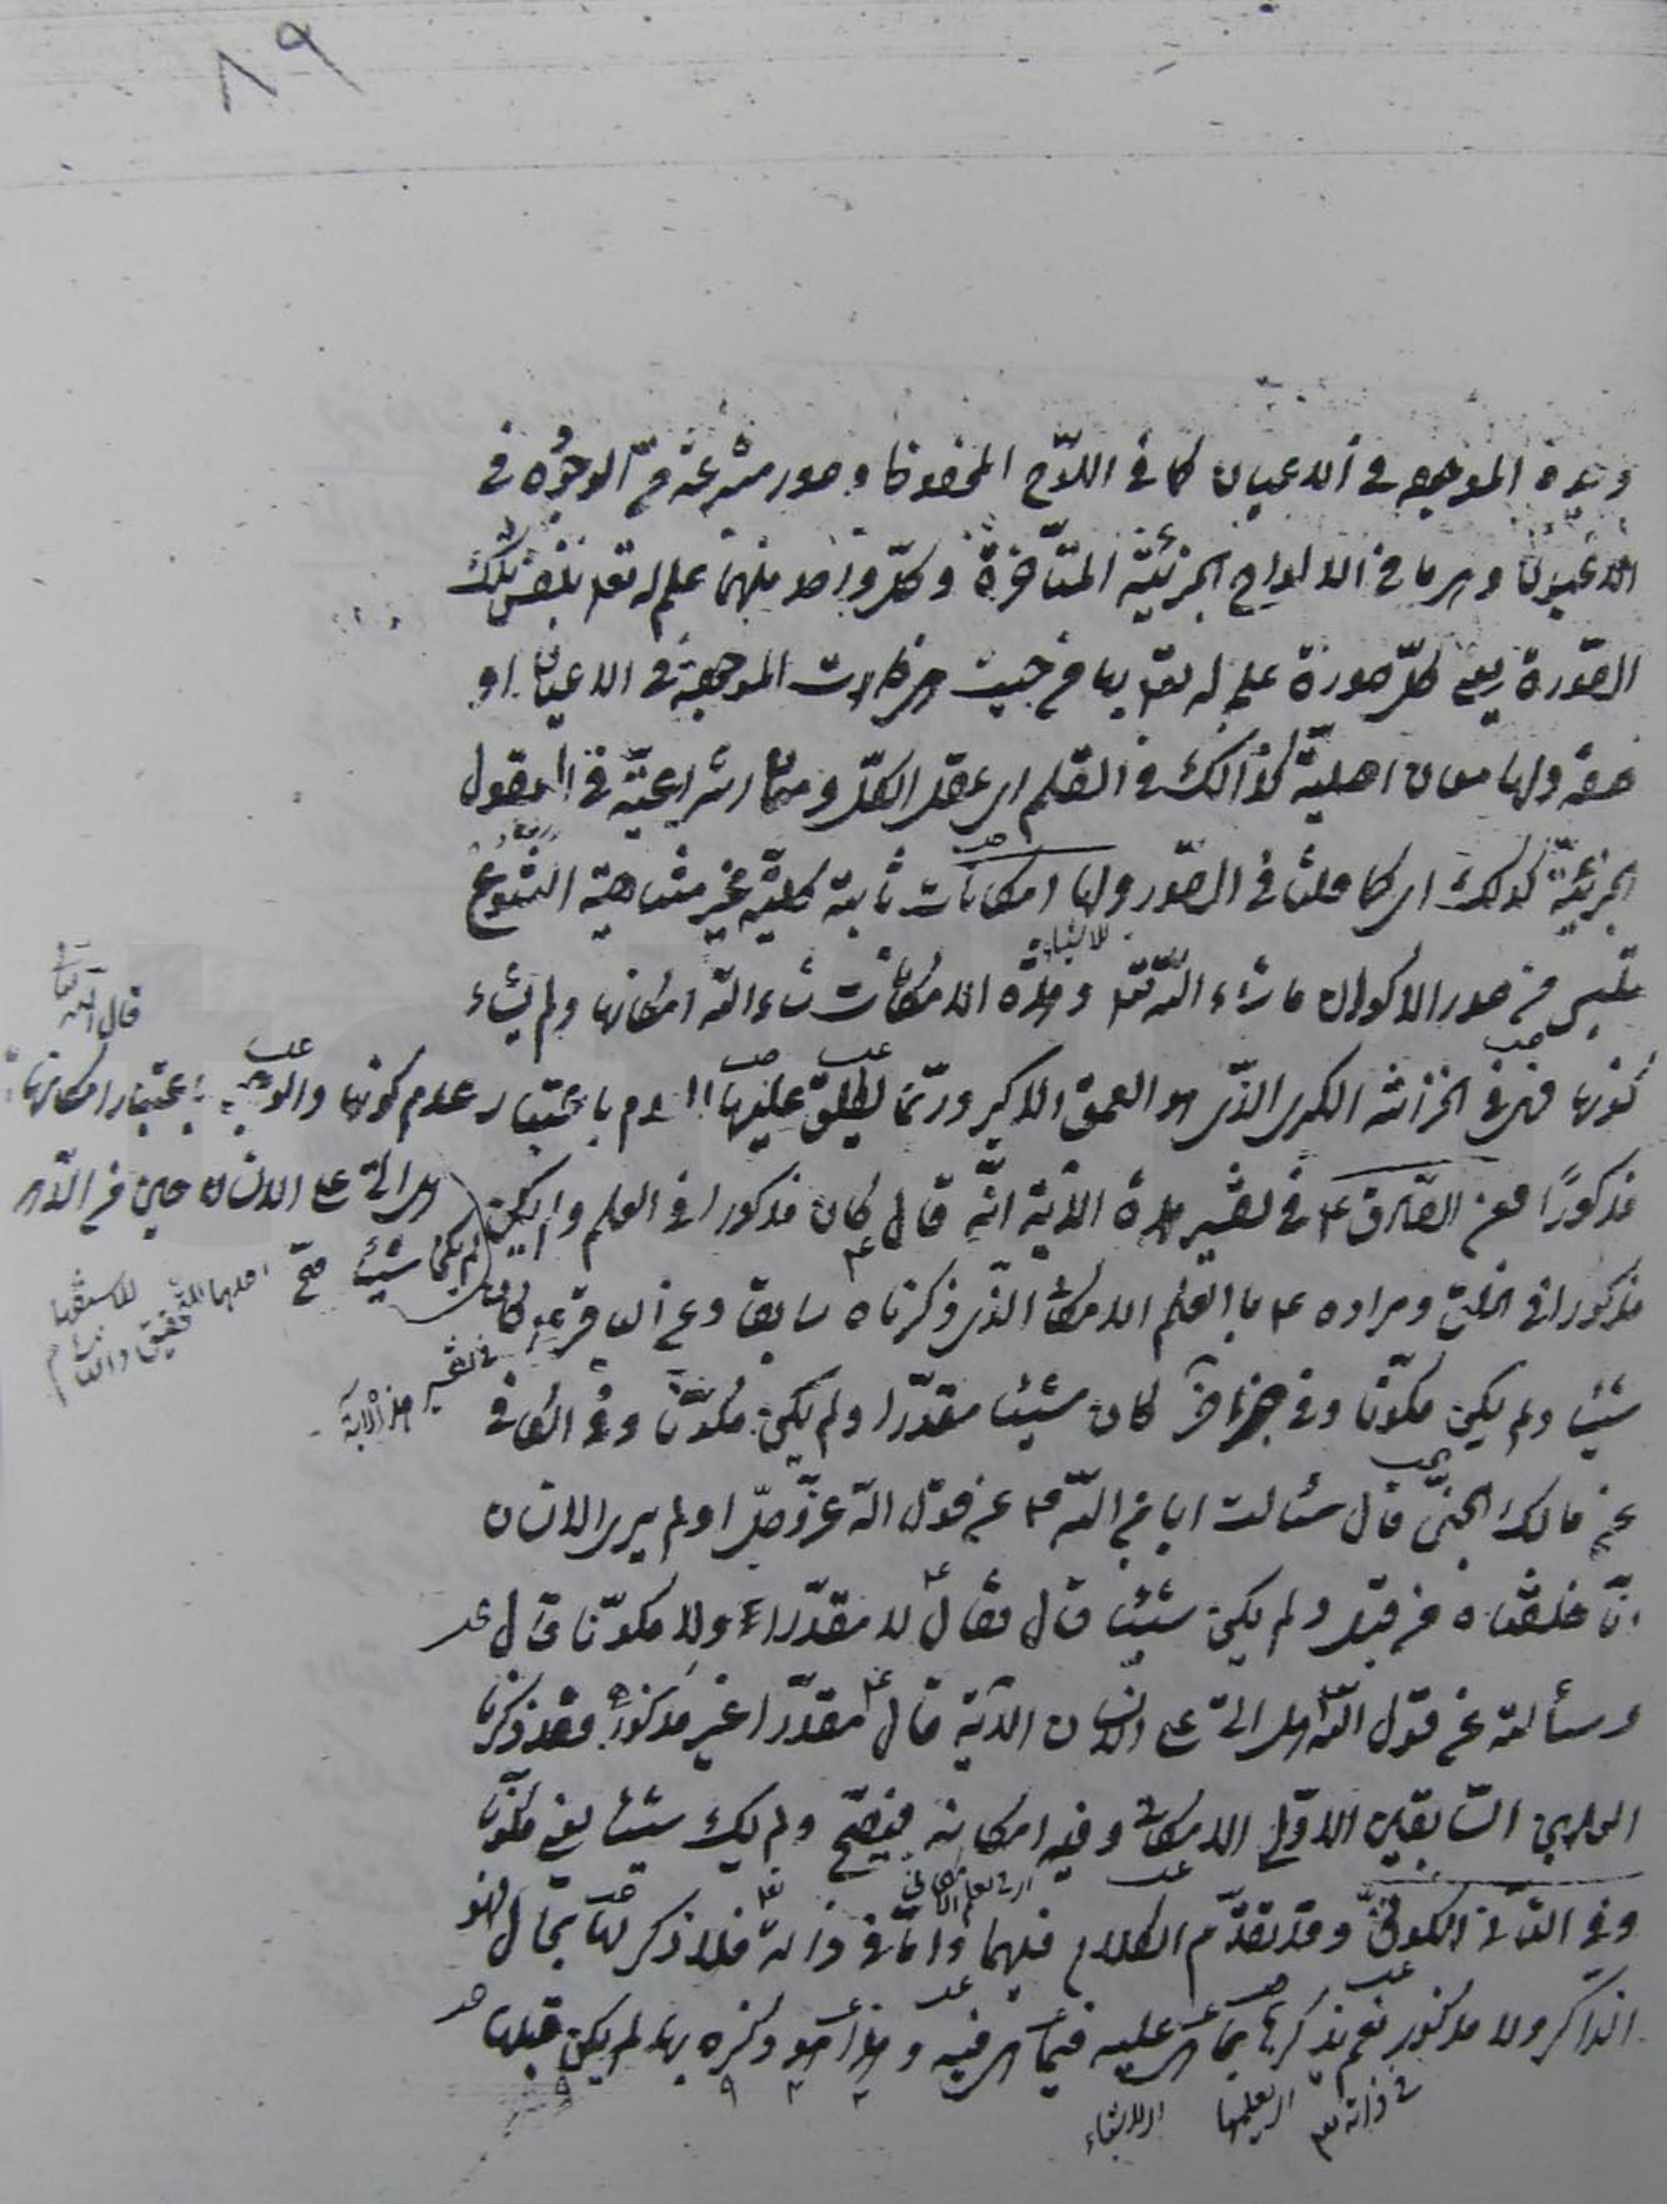 ٨٩
الموجودة في الاعيان كما في اللوح المحفوظ وصور منتزعة من الوجودة في
الاعيان وهي ما في الالواح الجزئيّة المتأخرة وكلّ واحد منهما علم له تعالى بنفس تلك
الصّورة يعني كلّ صورة علم له تعالى بها من حيث هي كانت الموجودة في الاعيان او
ولها معان اصليّة كذلك في القلم اي عقل الكلّ ومعان انتزاعيّة في العقول
الجزئيّة كذلك اي كما قلنا في الصّور ولها امكانات ثابتة كليّة غير متناهية التنوّع
تلبس من صور الاكوان ما شاء اللّه تعالى وهذه الامكانات شاء اللّه امكانها ولم يشاء
للاشياء
كونها فهي في الخزانة الكبرى الذي هو العمق الاكبر وربّما يطلق عليها العدم باعتبار عدم كونها والوجود باعتبار امكانها
قال اللّه تعالى
هل اتى على الانسان حين من الدّهر
لم يكن شيئا
مذكورًا فعن الصّادق ع في تفسير هذه الآية انّه قال كان مذكورا في العلم ولم يكن
مذكورا في الخلق ومراده ع بالعلم الامكان الذي ذكرناه سابقا وعن الباقر ع كان
في تفسير هذه الآية
شيئا ولم يكن مكوّنا وفي خبر آخر كان شيئا مقدّرا ولم يكن مكوّنا وفي الكافي
عن مالك الجهني قال سئالت ابا عبد اللّه ع عن قول اللّه عزّ وجلّ اولم ير الانسان
انّا خلقناه من قبل ولم يكن شيئا قال فقال ع لا مقدّرا ولا مكوّنا قال
وسألته عن قول اللّه هل اتى على الانسان الآية قال ع مقدّرا غير مذكور فقد ذكرنا
السابقين الاوّل الامكان وفيه امكانه فيصحّ ولم يك شيئا يعني مكوّنا
وفي الثّاني الكوني وقد تقدّم الكلام فيهما وامّا في ذاته تعالى فلا ذكر لها بحال فهو
الذّاكر ولا مذكور نعم يذكرها بما هي عليه فيما هي فيه وهذا هو ذكره بها لم يكن قبلها
في ذاته
اي بعلمها
اي الاشياء